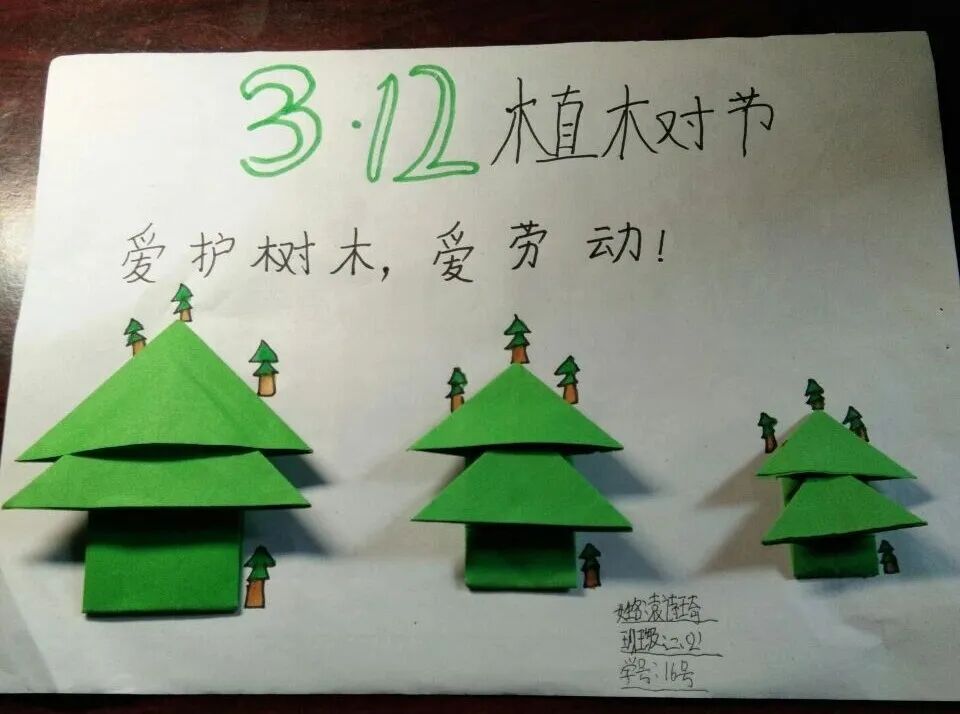 3·12 植树节
爱护树木，爱劳动！
姓名:袁 琦
班级:二
学号:16号